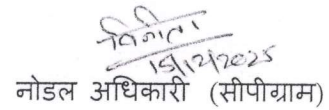 विनीता
15/12/2025
नोडल अधिकारी (सीपीग्राम)